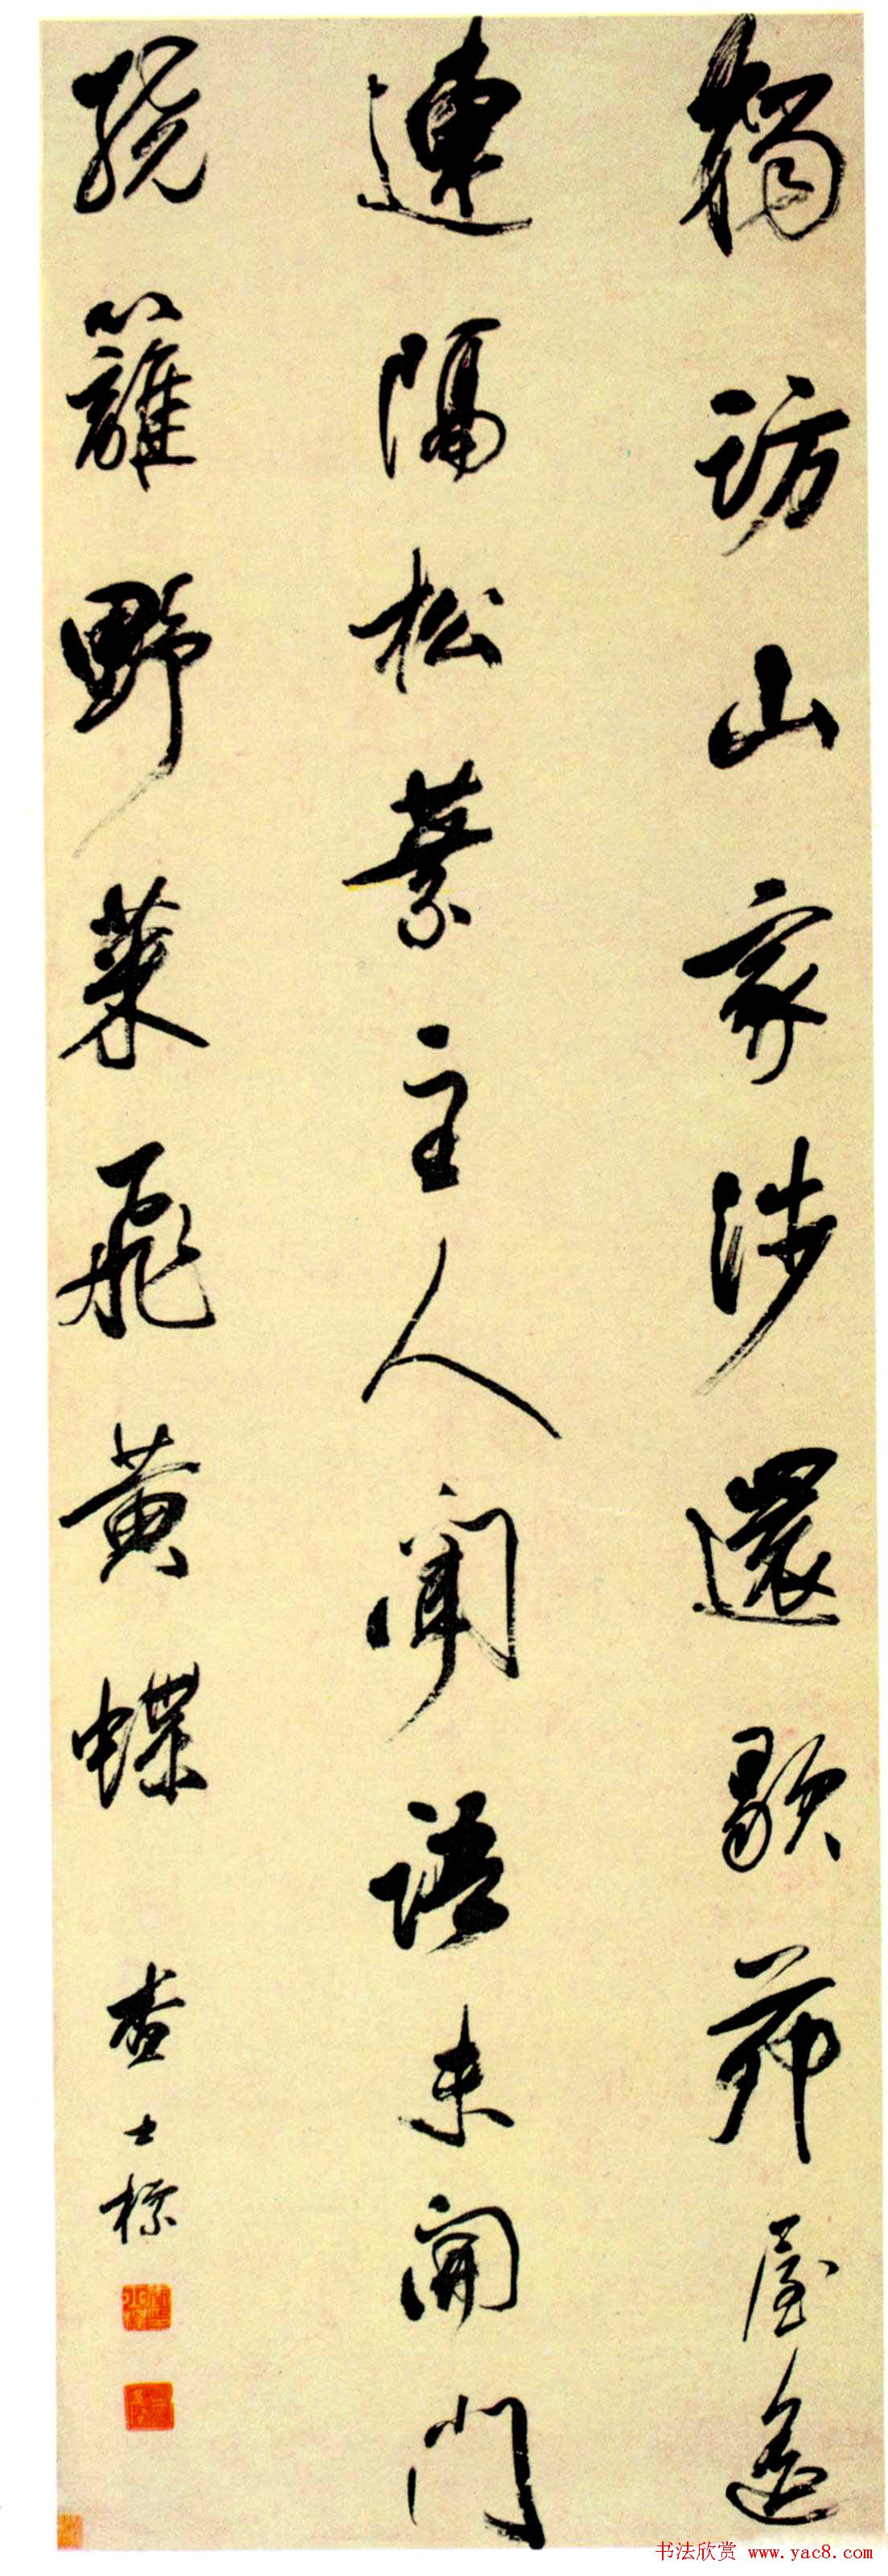 獨訪山家涉還歇茆屋遙
連隔松葉主人聞語未開門
繞籬野菜飛黃蝶
查士標
书法欣赏 www.yac8.com